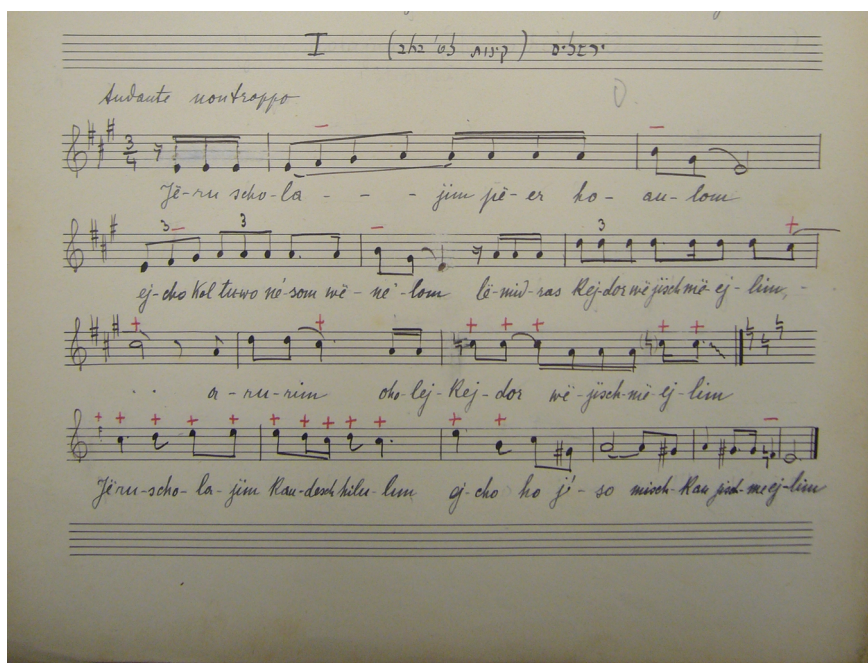 I (קינות לט' באב) ירושלים
Andante non troppo
3/4
Jĕ-ru scho-la - - - jim pĕ-er ho- au-lom
3 3
ej-cho kol tuwo né-som wĕ-ne'-lom lĕ-mid-ras kej-dor wĕ jisch mĕ-ej-lim,-
3
a-ru-rim cho-lej-kej-dor wĕ-jisch-mĕ-ej-lim
Jĕru-scho-la-jim kau-desch hilu-lim ej-cho ho j'-so misch-kan jisch-me ej-lim